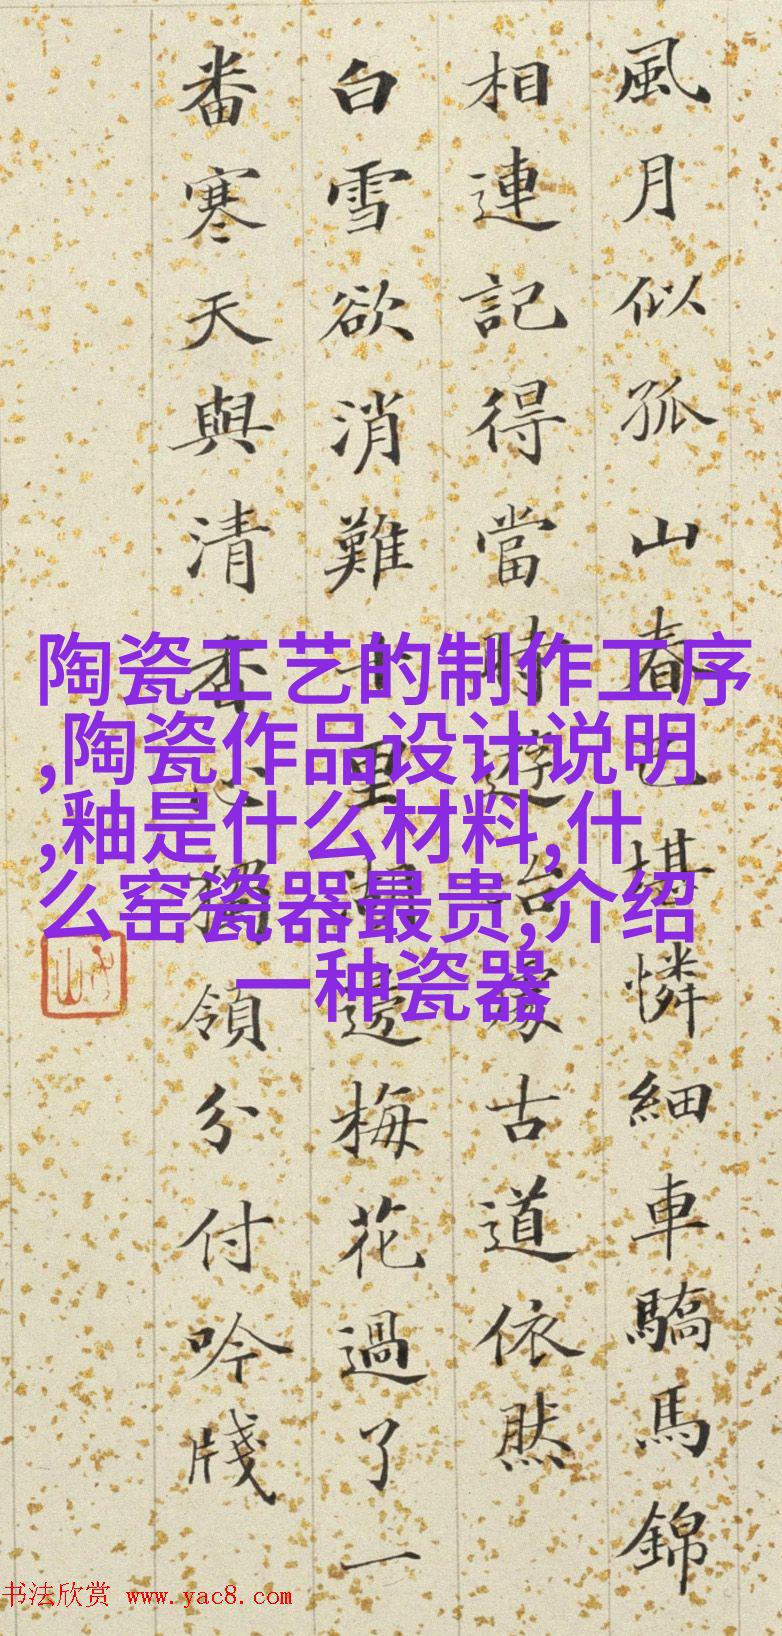 風月似孤山春已堪憐細車驕馬錦
相連記得當時遊冶家古道依然
白雪欲消難十里湖邊梅花過了一
番寒天與清香心獨領分付吟牋
陶瓷工艺的制作工序
,陶瓷作品设计说明
,釉是什么材料,什
么窑瓷器最贵,介绍
一种瓷器
书法欣赏 www.yac8.com